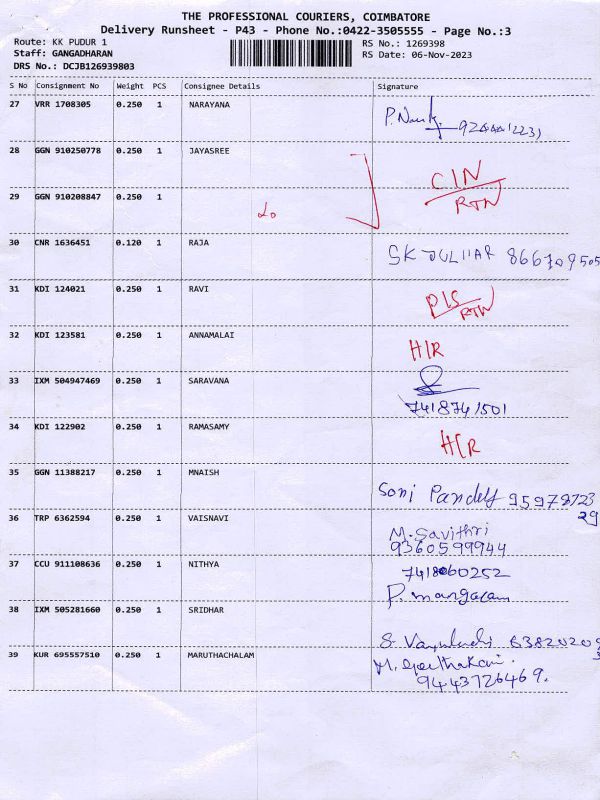 THE PROFESSIONAL COURIERS, COIMBATORE
Delivery Runsheet - P43 - Phone No.:0422-3505555 - Page No.:3
Route: KK PUDUR 1 RS No.: 1269398
Staff: GANGADHARAN RS Date: 06-Nov-2023
DRS No.: DCJB126939803
S No Consignment No Weight PCS Consignee Details Signature
27 VRR 1708305 0.250 1 NARAYANA
28 GGN 910250778 0.250 1 JAYASREE
CIN
29 GGN 910208847 0.250 1 RTN
30 CNR 1636451 0.120 1 RAJA
SK 866709505
31 KDI 124021 0.250 1 RAVI
RTN
32 KDI 123581 0.250 1 ANNAMALAI
H/R
33 IXM 504947469 0.250 1 SARAVANA
7418741501
34 KDI 122902 0.250 1 RAMASAMY
H/R
35 GGN 11388217 0.250 1 MNAISH
Soni Pandey
29
36 TRP 6362594 0.250 1 VAISNAVI
M. Savithri
9360599944
37 CCU 911108636 0.250 1 NITHYA
7418060252
P. mangaram
38 IXM 505281660 0.250 1 SRIDHAR
S. 63820209
39 KUR 695557510 0.250 1 MARUTHACHALAM
9443726469.